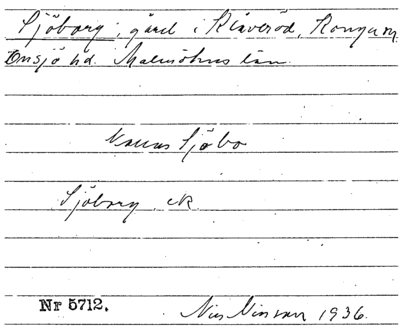 Sjöborg, gård i Kläveröd, Konga sn.
Onsjö hd. Malmöhus län.
Kallas Sjöbo
Sjöborg ek
Nr 5712.
Nils Nilsson 1936.